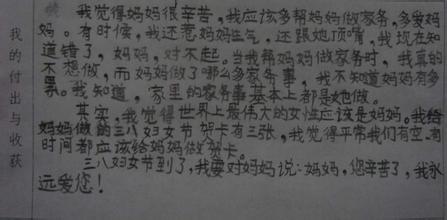 我觉得妈妈很辛苦，我应该多帮妈妈做家务，多爱妈
妈。有时候，我还惹妈妈生气，还跟她顶嘴，我现在知
道错了，妈妈，对不起。当我帮妈妈做家务时，我真的
不想做，而妈妈做了哪么多家务事，我不知道妈妈有多
累。我知道，家里的家务事基本上都是她做。
其实，我觉得世界上最伟大的女性应该是妈妈。我给
妈妈做的三八妇女节贺卡有三张，我觉得平常我们有空、有
时间都应该给妈妈做贺卡。
三八妇女节到了，我要对妈妈说：妈妈，您辛苦了，我永
远爱您！
我的付出与收获